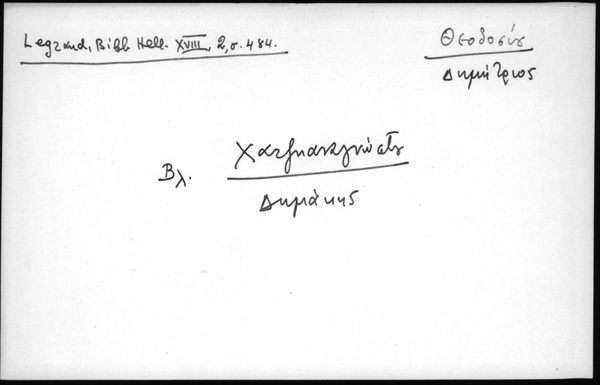 Legrand, Bibl. Hell. XVIII, 2, σ. 484.
Θεοδοσίου
Δημήτριος
Βλ. Χατζηαναγνώστου
Δημάκης